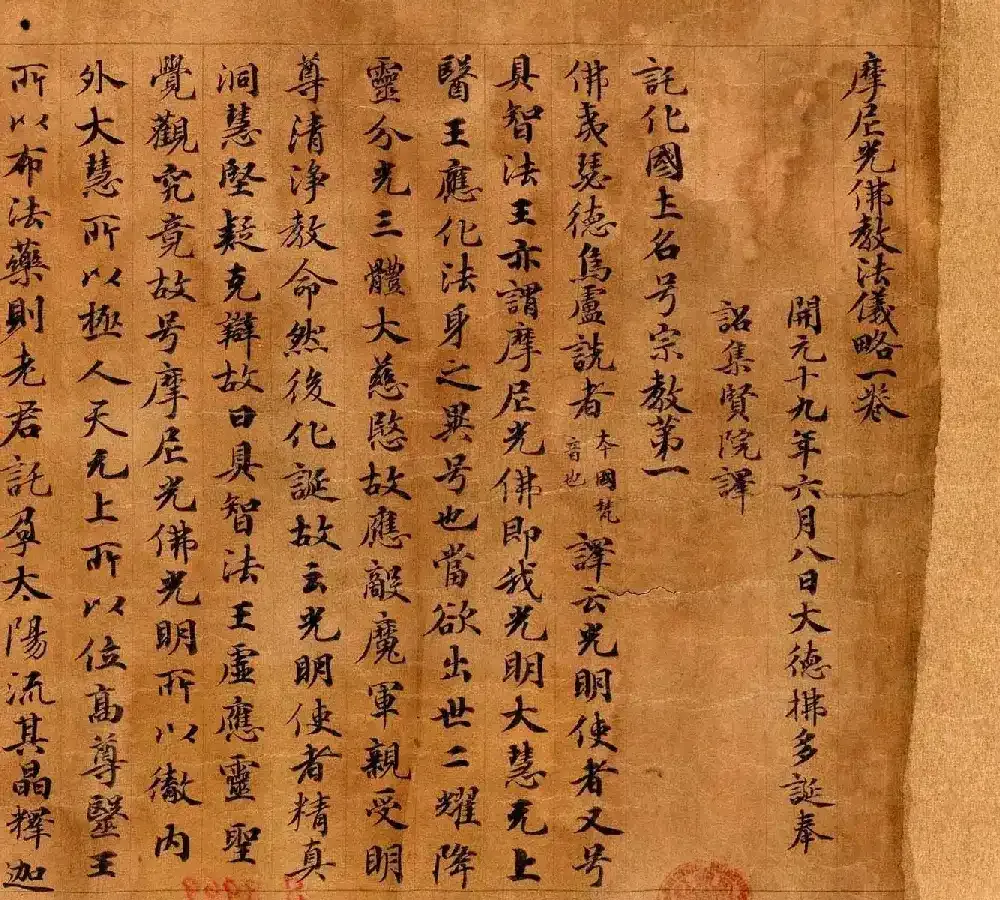 摩尼光佛教法儀略一卷
開元十九年六月八日大德拂多誕奉
詔集賢院譯
託化國主名号宗教第一
佛夷瑟德烏盧詵者 本國梵音也 譯云光明使者又号
具智法王亦謂摩尼光佛即我光明大慧无上
醫王應化法身之異号也當欲出世二耀降
靈分光三體大慈愍故應敵魔軍親受明
尊清淨教命然後化誕故云光明使者精真
洞慧堅疑克辯故曰具智法王虛應靈聖
覺觀究竟故号摩尼光佛光明所以徹內
外大慧所以極人天无上所以位高尊醫王
所以布法藥則老君託孕太陽流其晶釋迦